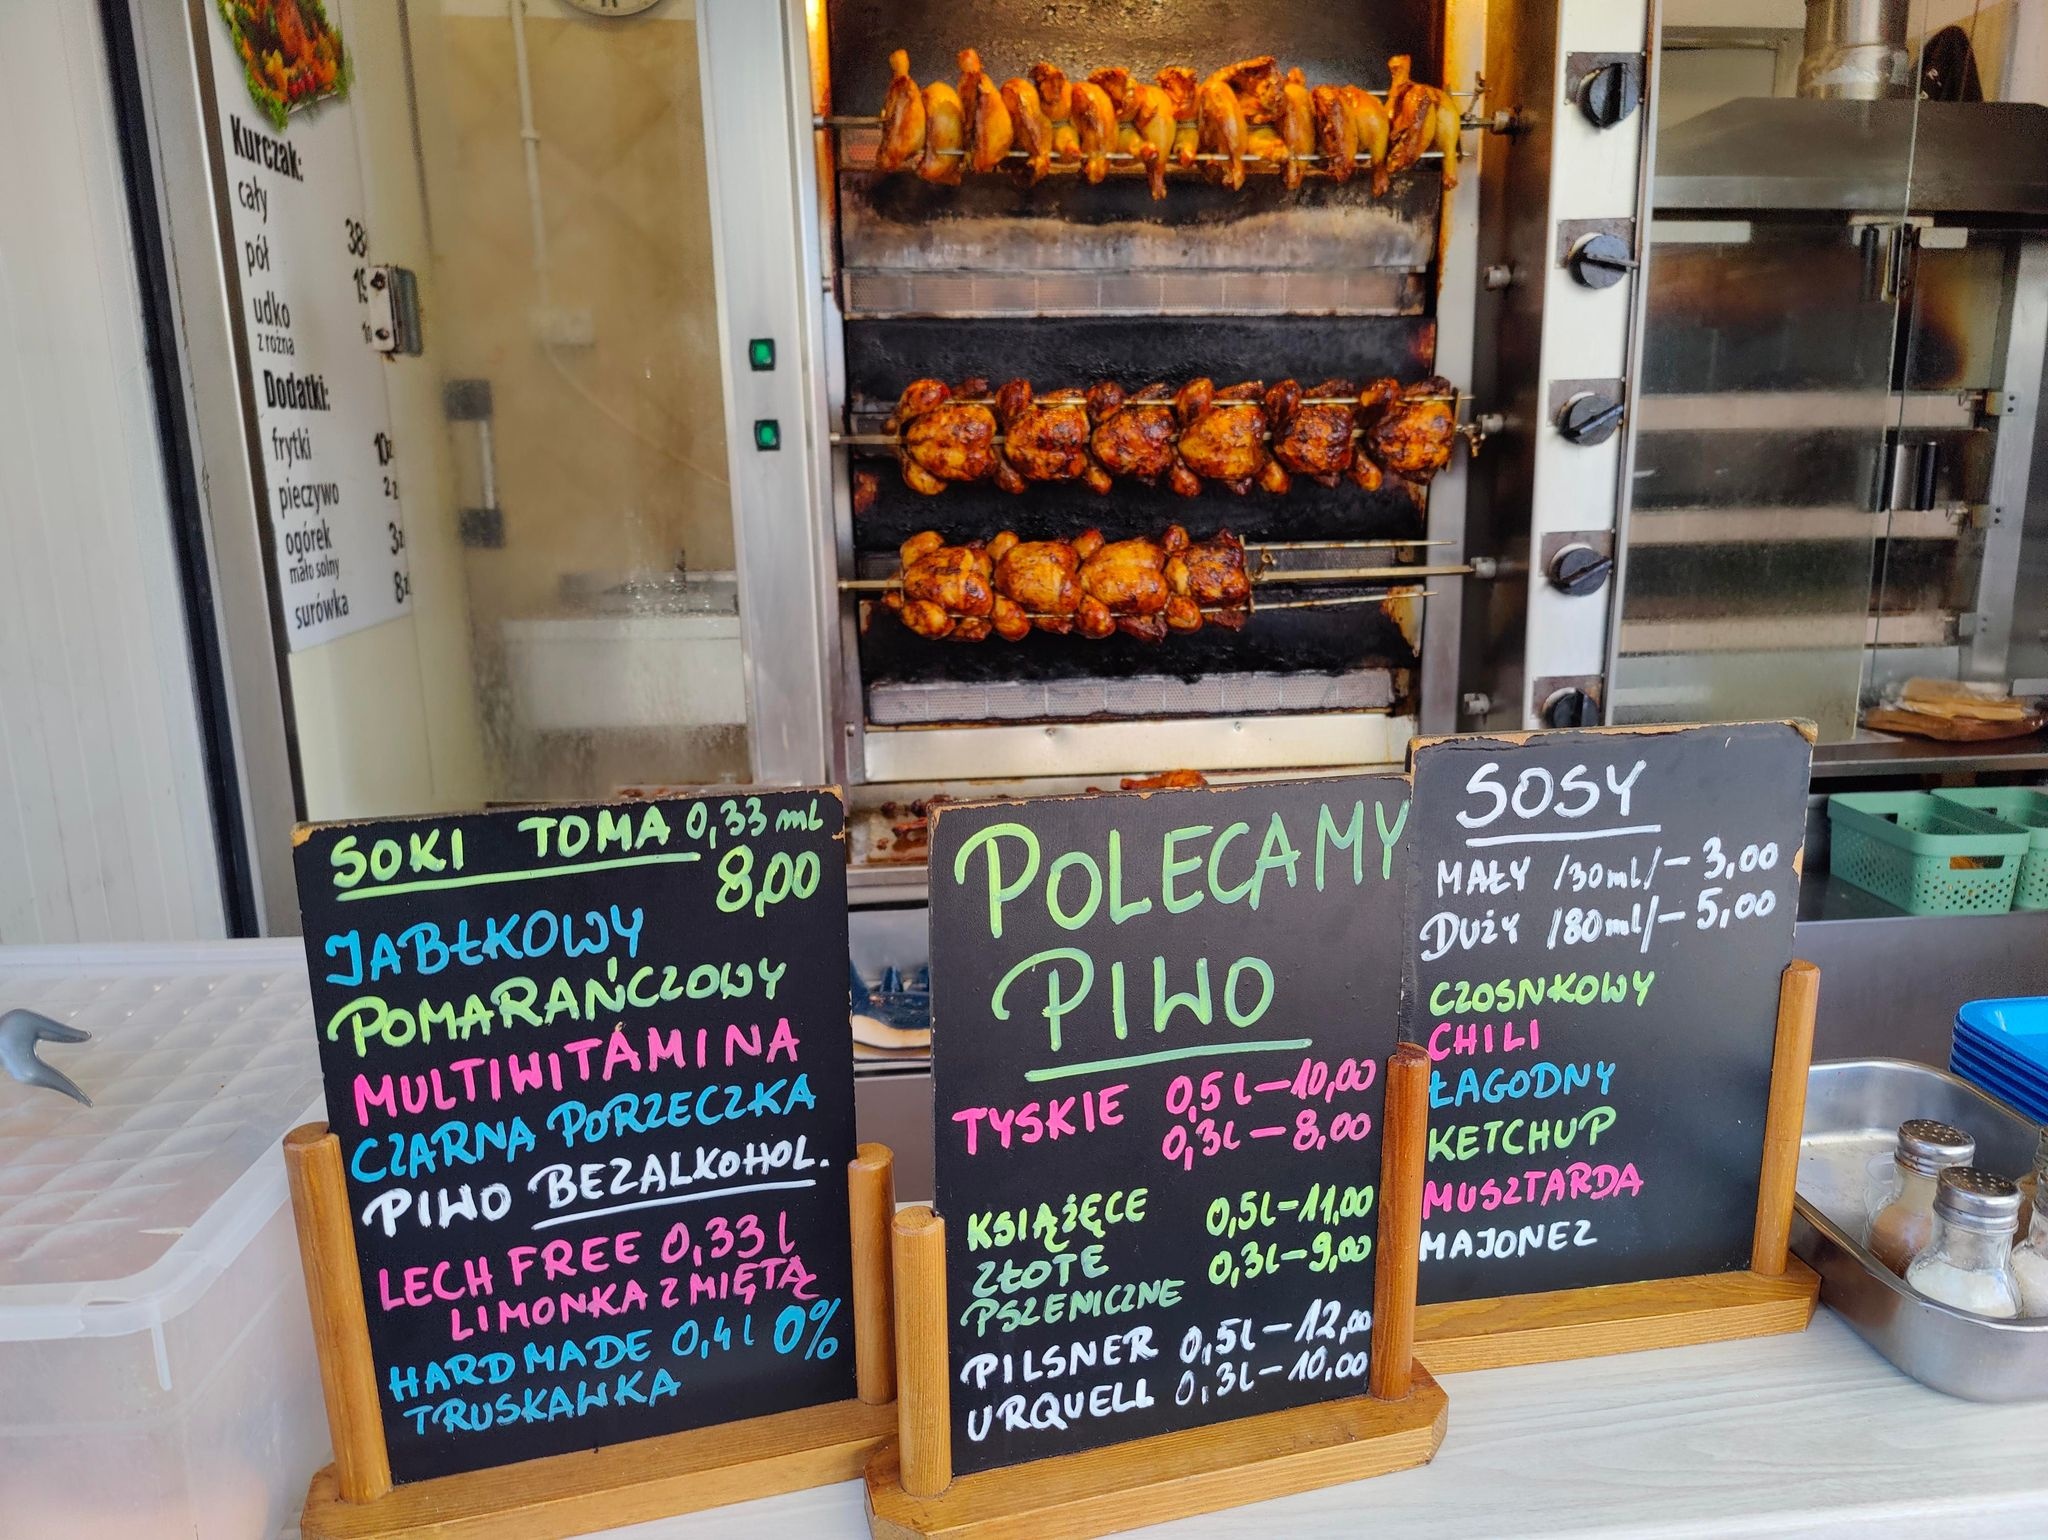 Kurczak:
cały 38
pół 19
udko
z rożna
Dodatki:
frytki 10zł
pieczywo 2z
ogórek 3z
mało solny
surówka 8z
SOKI TOMA 0,33 mL
8,00
JABŁKOWY
POMARAŃCZOWY
MULTIWITAMINA
CZARNA PORZECZKA
PIWO BEZALKOHOL.
LECH FREE 0,33 l
LIMONKA Z MIĘTĄ
HARDMADE 0,4 l 0%
TRUSKAWKA
POLECAMY
PIWO
TYSKIE 0,5 l – 10,00
0,3 l – 8,00
KSIĄŻĘCE 0,5 l – 11,00
ZŁOTE 0,3 l – 9,00
PSZENICZNE
PILSNER 0,5 l – 12,00
URQUELL 0,3 l – 10,00
SOSY
MAŁY /30 ml/ – 3,00
DUŻY /80 ml/ – 5,00
CZOSNKOWY
CHILI
ŁAGODNY
KETCHUP
MUSZTARDA
MAJONEZ